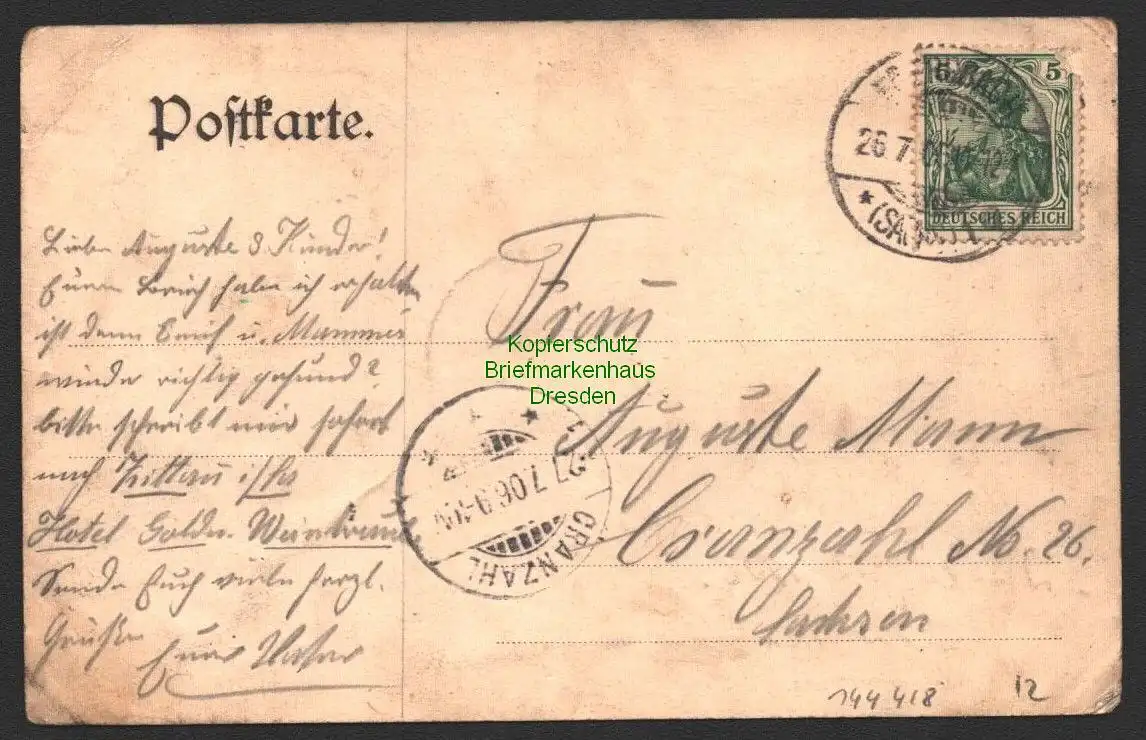 Postkarte.
5
26 7
DEUTSCHES REICH
Liebe Auguste & Kinder!
Euren Brief habe ich erhalten
ist denn Erich u. Mammes
wieder richtig gesund?
bitte schreibt mir sofort
nach Zittau i/Sa
Hotel Goldn. Weintraube
Sende Euch viele herzl.
Grüße Euer Vater
Frau
Auguste Mann
Cranzahl No. 26.
Sachsen
27.7.06.9-10V
CRANZAHL
Kopierschutz
Briefmarkenhaus
Dresden
144 418
12